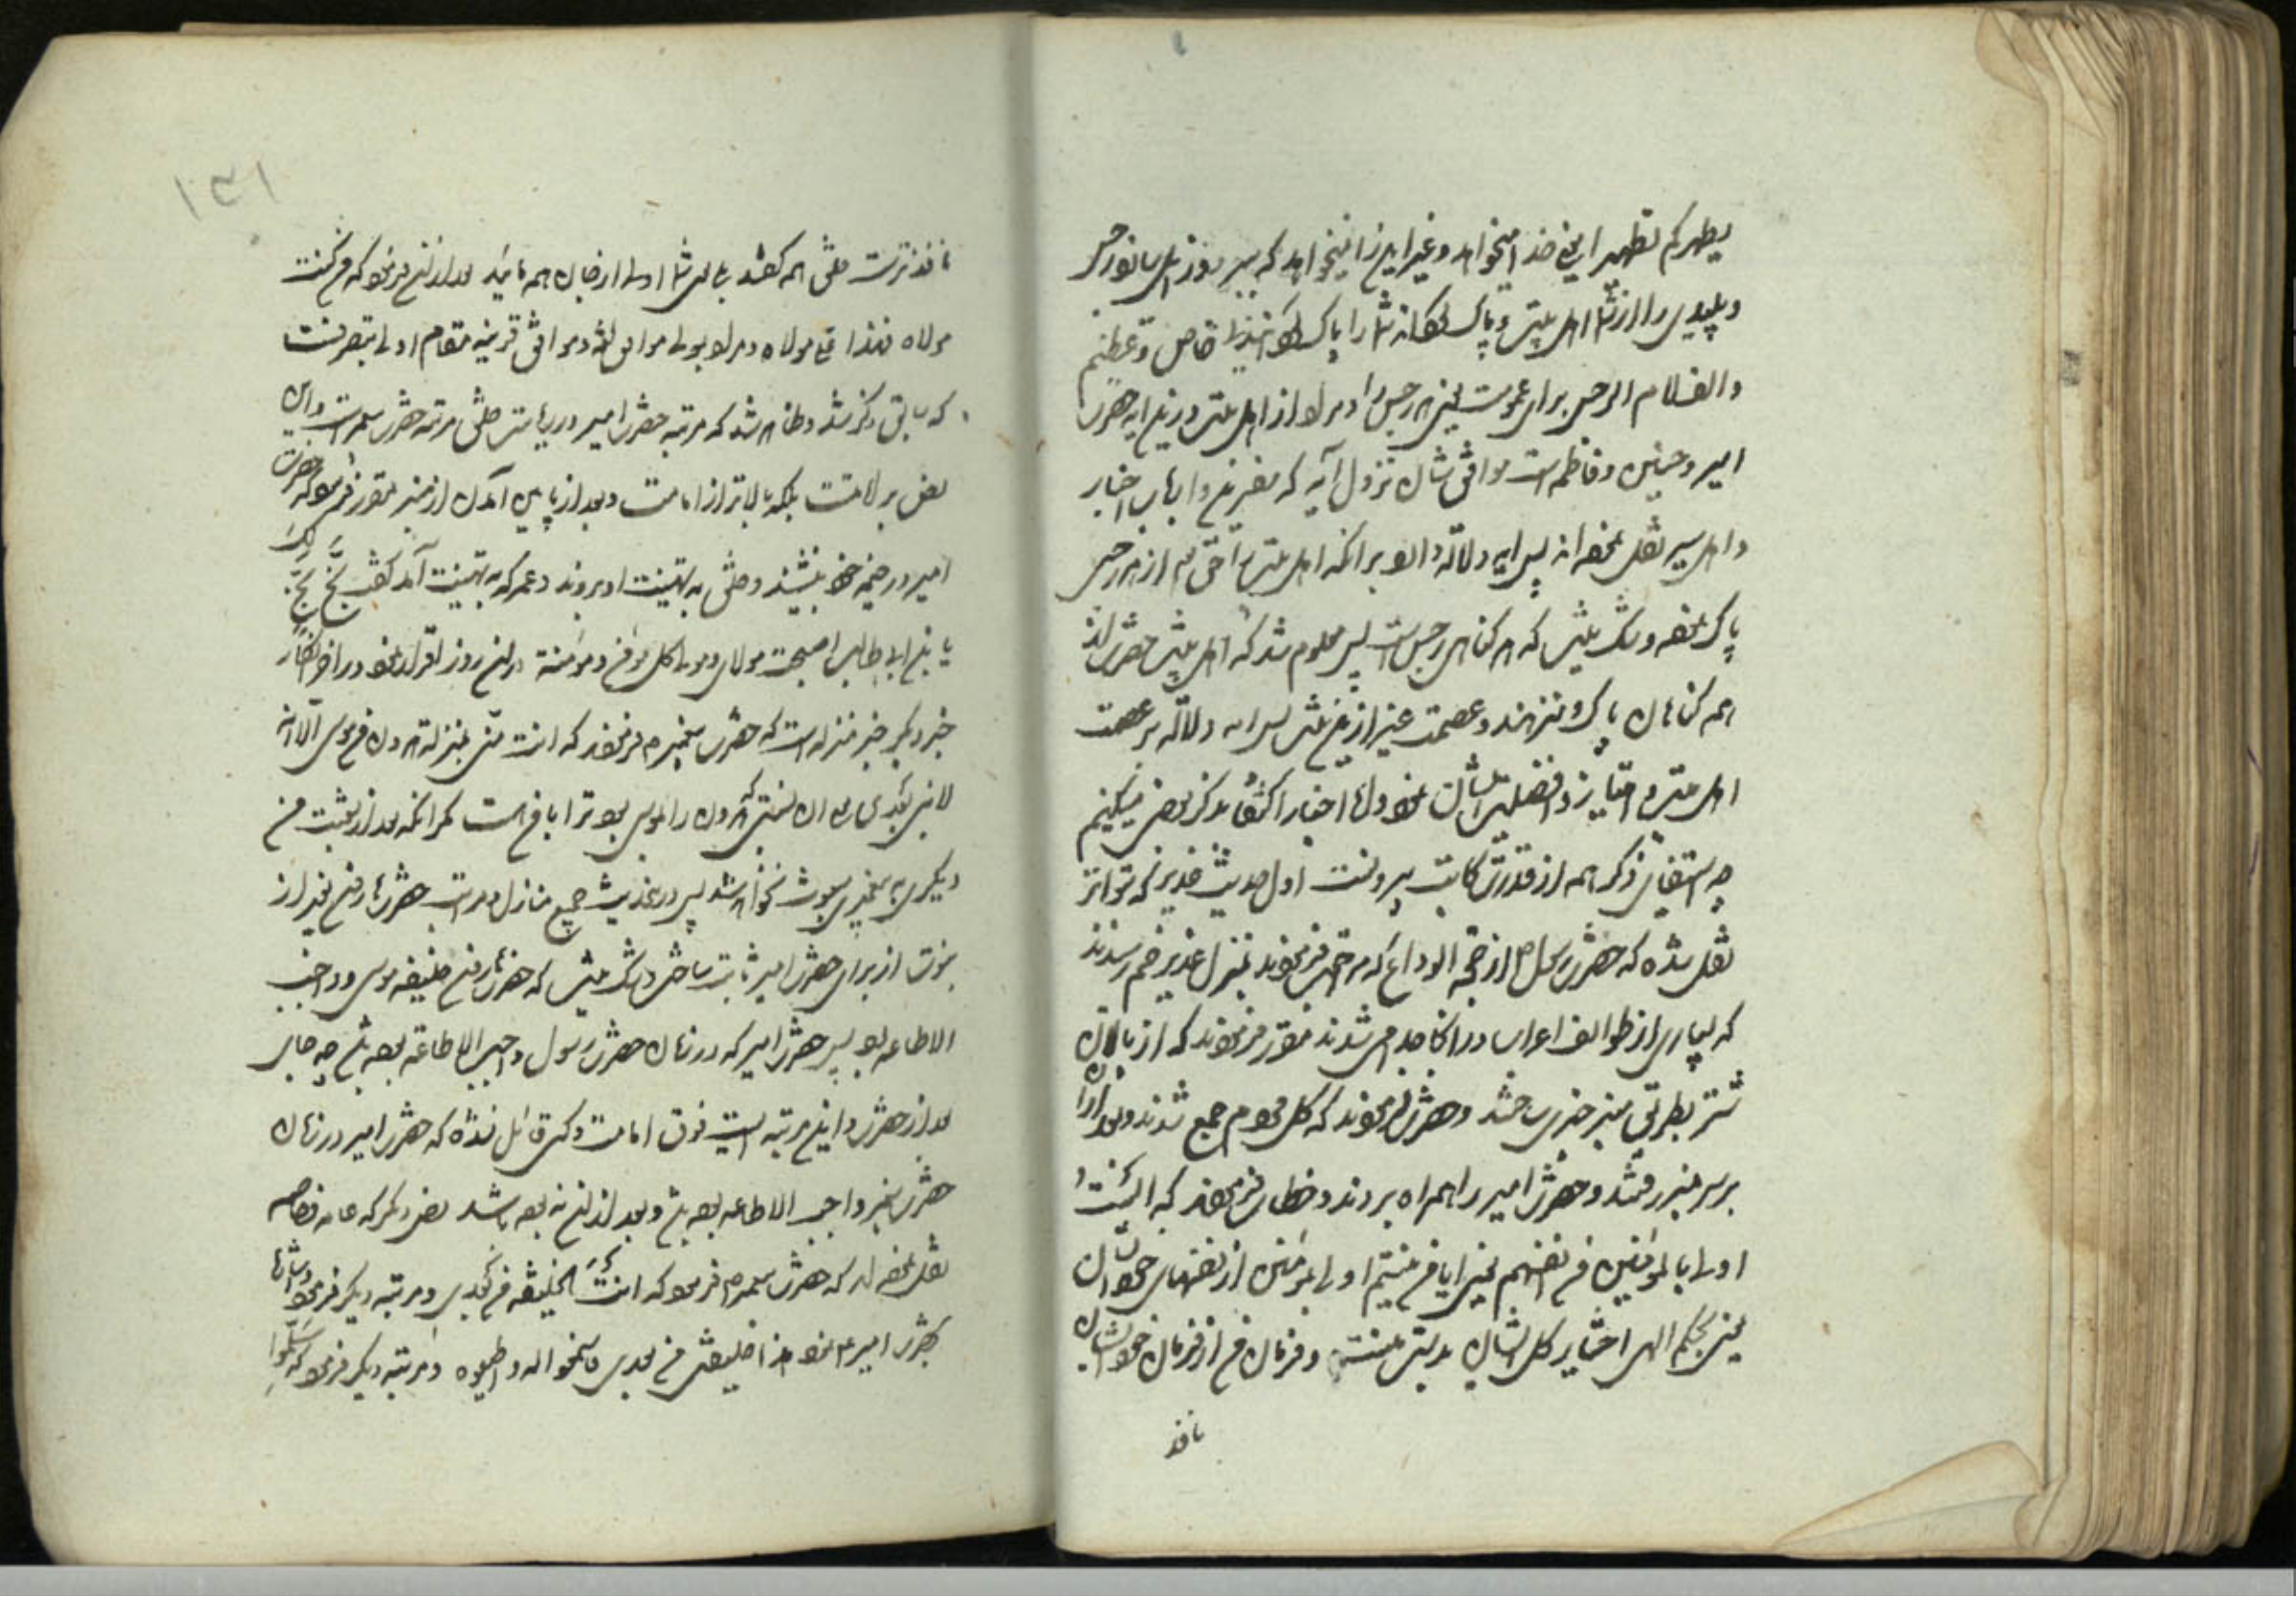 یطهرکم تطهیرا یعنی خدا میخواهد و غیر این را نمیخواهد که ببرد
و پلیدی را از شما اهل بیت و پاک کند شما را پاک
والف لام الرجس برای عموم است یعنی هر رجس را و مراد از اهل بیت در این آیه حضرت
امیر و حسنین و فاطمه است موافق شان نزول آیه که مفسرین و ارباب اخبار
و اهل سیر نقل نموده‌اند پس آیه دلالت دارد بر آنکه اهل بیت را حق تعالی از هر رجس
پاک نموده و شک نیست که هر گناهی رجس است پس معلوم شد که اهل بیت حضرت از
همه گناهان پاک و منزهند و عصمت غیر از این نیست پس آیه دلالت بر عصمت
اهل بیت و امتیاز و افضلیت ایشان نمود و اما اخبار اکتفا بذکر بعضی میکنیم
چه استیفای ذکر همه از قدرت کاتب بیرونست اول حدیث غدیر که بتواتر
نقل شده که حضرت رسول از حجة الوداع که مراجعت فرمودند بمنزل غدیر خم رسیدند
که بسیاری از طوایف اعراب در آنجا جدا می‌شدند مقرر فرمودند که از پالان
شتر بطریق منبر چیزی ساختند و حضرت فرمودند که کل مردم جمع شدند و بعد از آن
بر سر منبر رفتند و حضرت امیر را همراه بردند و خطاب فرمودند که الست
اولی بالمؤمنین من انفسهم یعنی آیا من نیستم اولی بمؤمنین از نفسهای خودشان
یعنی بحکم الهی اختیار کل ایشان بدست منست و فرمان من از فرمان خودشان
نافذ
۱۳۱
نافذتر است خلق همه گفتند بلی شما اولی از خیال همه مائید بعد از این فرمود که من کنت
مولاه فهذا علی مولاه و مراد بمولی موافق لغت و موافق قرینه مقام اولی بتصرفست
که سابق ذکر شد و ظاهر شد که مرتبه حضرت امیر در ریاست خلق مرتبه حضرت پیغمبر است و این
نص بر امامت بلکه بالاتر از امامت و بعد از پایین آمدن از منبر مقرر فرمود که حضرت
امیر در خیمه خود بنشیند و خلق به تهنیت او بروند و عمر که به تهنیت آمد گفت بخ بخ لک
یا بن ابی طالب اصبحت مولای و مولی کل مؤمن و مؤمنة در این روز اقرار نمود و در آخر انکار
خبر دیگر خبر منزله است که حضرت پیغمبر فرمودند که انت منی بمنزلة هرون من موسی الا انه
لا نبی بعدی یعنی آن نسبتی که هرون را بموسی بود ترا با من هست مگر آنکه بعد از بعثت من
دیگری به پیغمبری مبعوث نخواهد شد پس در این حدیث جمیع منازل و مراتب حضرت هارون بغیر از
نبوت از برای حضرت امیر ثابت ساخت و شک نیست که حضرت هارون خلیفه موسی و واجب
الاطاعه بود پس حضرت امیر که در زمان حضرت رسول واجب الاطاعة بوده باشد چه جای
بعد از حضرت و این مرتبه ایست فوق امامت و کسی قائل نشده که حضرت امیر در زمان
حضرت پیغمبر واجب الاطاعه بوده باشد و بعد از این نه بوده باشد نص دیگر که عامه و خاصه
نقل نموده‌اند که حضرت پیغمبر فرمود که انت الخلیفه من بعدی و مرتبه دیگر فرمود و اشاره
بحضرت امیر نمود هذا خلیفتی من بعدی فاسمعوا له و اطیعوه و مرتبه دیگر فرمود که سلموا